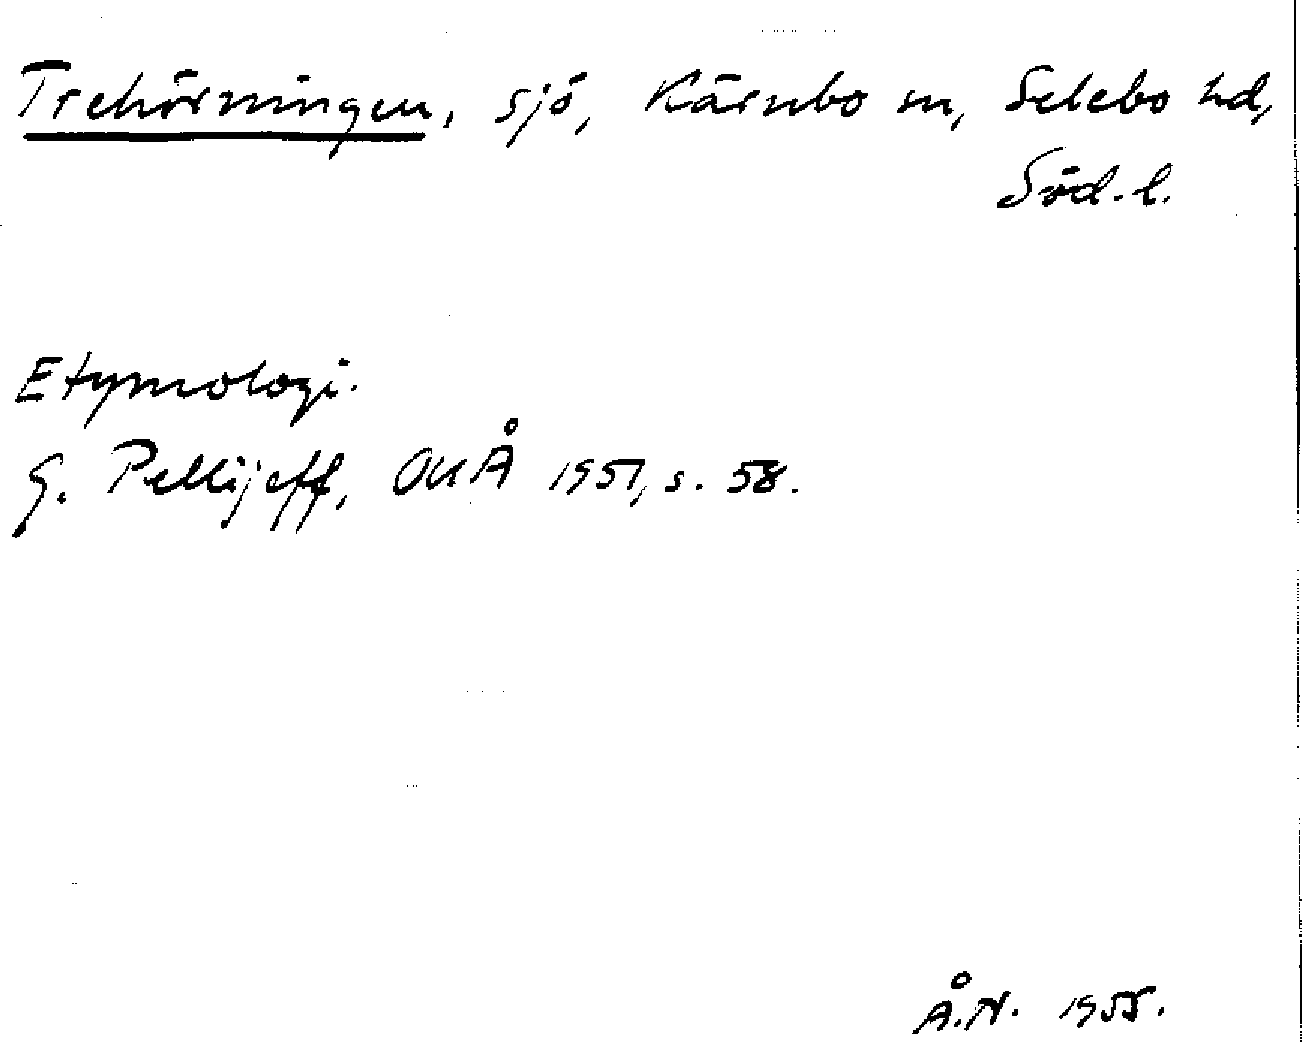 Trehörningen, sjö, Kärnbo sn, Selebo hd,
Söd. l.
Etymologi.
G. Pellijeff, OUÅ 1951, s. 58.
Å.N. 1955.